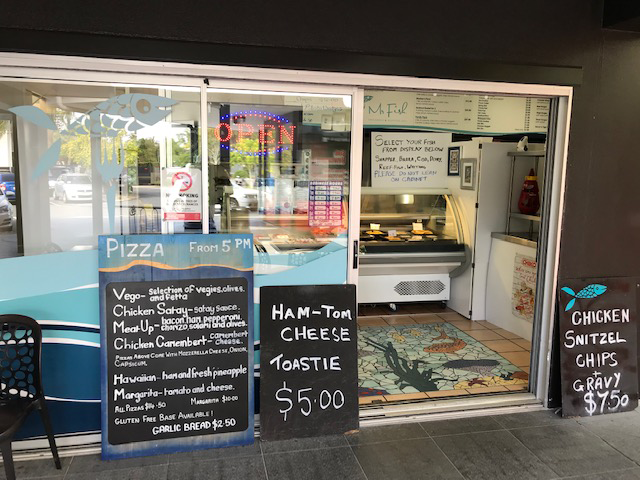 OPEN
NO SMOKING
Mr Fish
SELECT YOUR FISH
FROM DISPLAY BELOW
SNAPPER, BARRA, COD, DORY,
REEF FISH, WHITING,
PLEASE DO NOT LEAN
ON CABINET
PIZZA FROM 5 PM
Vego- selection of vegies, olives,
and fetta
Chicken Satay- satay sauce.
Meat Up- bacon, ham, pepperoni,
chorizo, salami and olives.
Chicken Camembert- camembert
cheese.
PIZZAS ABOVE COME WITH MOZZERELLA CHEESE, ONION,
CAPSICUM.
Hawaiian- ham and fresh pineapple
Margarita- tomato and cheese.
ALL PIZZAS $14.50 MARGARITA $10.00
GLUTEN FREE BASE AVAILABLE!
GARLIC BREAD $2.50
HAM-TOM
CHEESE
TOASTIE
$5.00
CHICKEN
SNITZEL
CHIPS
+
GRAVY
$7.50